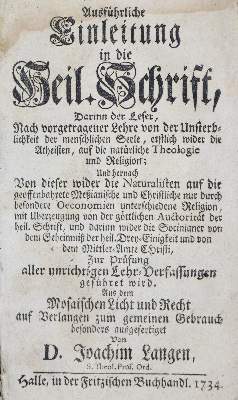 Ausführliche
Einleitung
in die
Heil. Schrift,
Darinn der Leser,
Nach vorgetragener Lehre von der Unsterb-
lichkeit der menschlichen Seele, erstlich wider die
Atheisten, auf die natürliche Theologie
und Religion;
Und hernach
Von dieser wider die Naturalisten auf die
geoffenbahrete Meßianische und Christliche nur durch
besondere Oeconomien unterschiedene Religion,
mit Uberzeugung von der göttlichen Auctorität der
heil. Schrift, und darinn wider die Socinianer von
dem Geheimniß der heil. Drey-Einigkeit und von
dem Mittler-Amte Christi,
Zur Prüfung
aller unrichtigen Lehr-Verfassungen
geführet wird.
Aus dem
Mosaischen Licht und Recht
auf Verlangen zum gemeinen Gebrauch
besonders ausgefertiget
Von
D. Joachim Langen,
S. Theol. Prof. Ord.
Halle, in der Fritzischen Buchhandl. 1734.